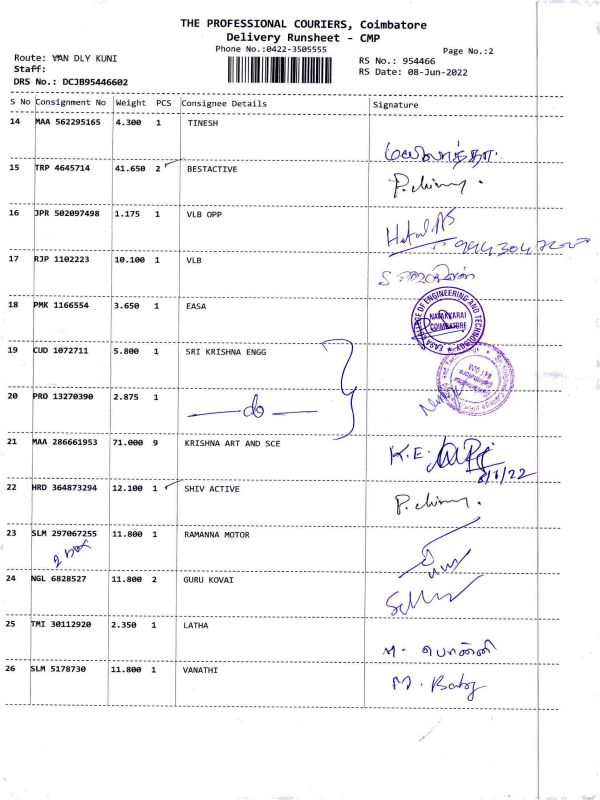 THE PROFESSIONAL COURIERS, Coimbatore
Delivery Runsheet - CMP
Phone No.:0422-3505555
Page No.:2
Route: VAN DLY KUNI
RS No.: 954466
Staff:
RS Date: 08-Jun-2022
DRS No.: DCJB95446602
S No Consignment No Weight PCS Consignee Details Signature
14 MAA 562295165 4.300 1 TINESH
15 TRP 4645714 41.650 2 BESTACTIVE
16 JPR 502097498 1.175 1 VLB OPP
17 RJP 1102223 10.100 1 VLB
18 PMK 1166554 3.650 1 EASA
EASA COLLEGE OF ENGINEERING AND TECHNOLOGY
NAVAKKARAI
COIMBATORE
19 CUD 1072711 5.800 1 SRI KRISHNA ENGG
20 PRO 13270390 2.875 1
do
21 MAA 286661953 71.000 9 KRISHNA ART AND SCE
K.E.
8/6/22
22 HRD 364873294 12.100 1 SHIV ACTIVE
23 SLM 297067255 11.800 1 RAMANNA MOTOR
2 box
24 NGL 6828527 11.800 2 GURU KOVAI
25 TMI 30112920 2.350 1 LATHA
M. பொன்னி
26 SLM 5178730 11.800 1 VANATHI
M. Baby